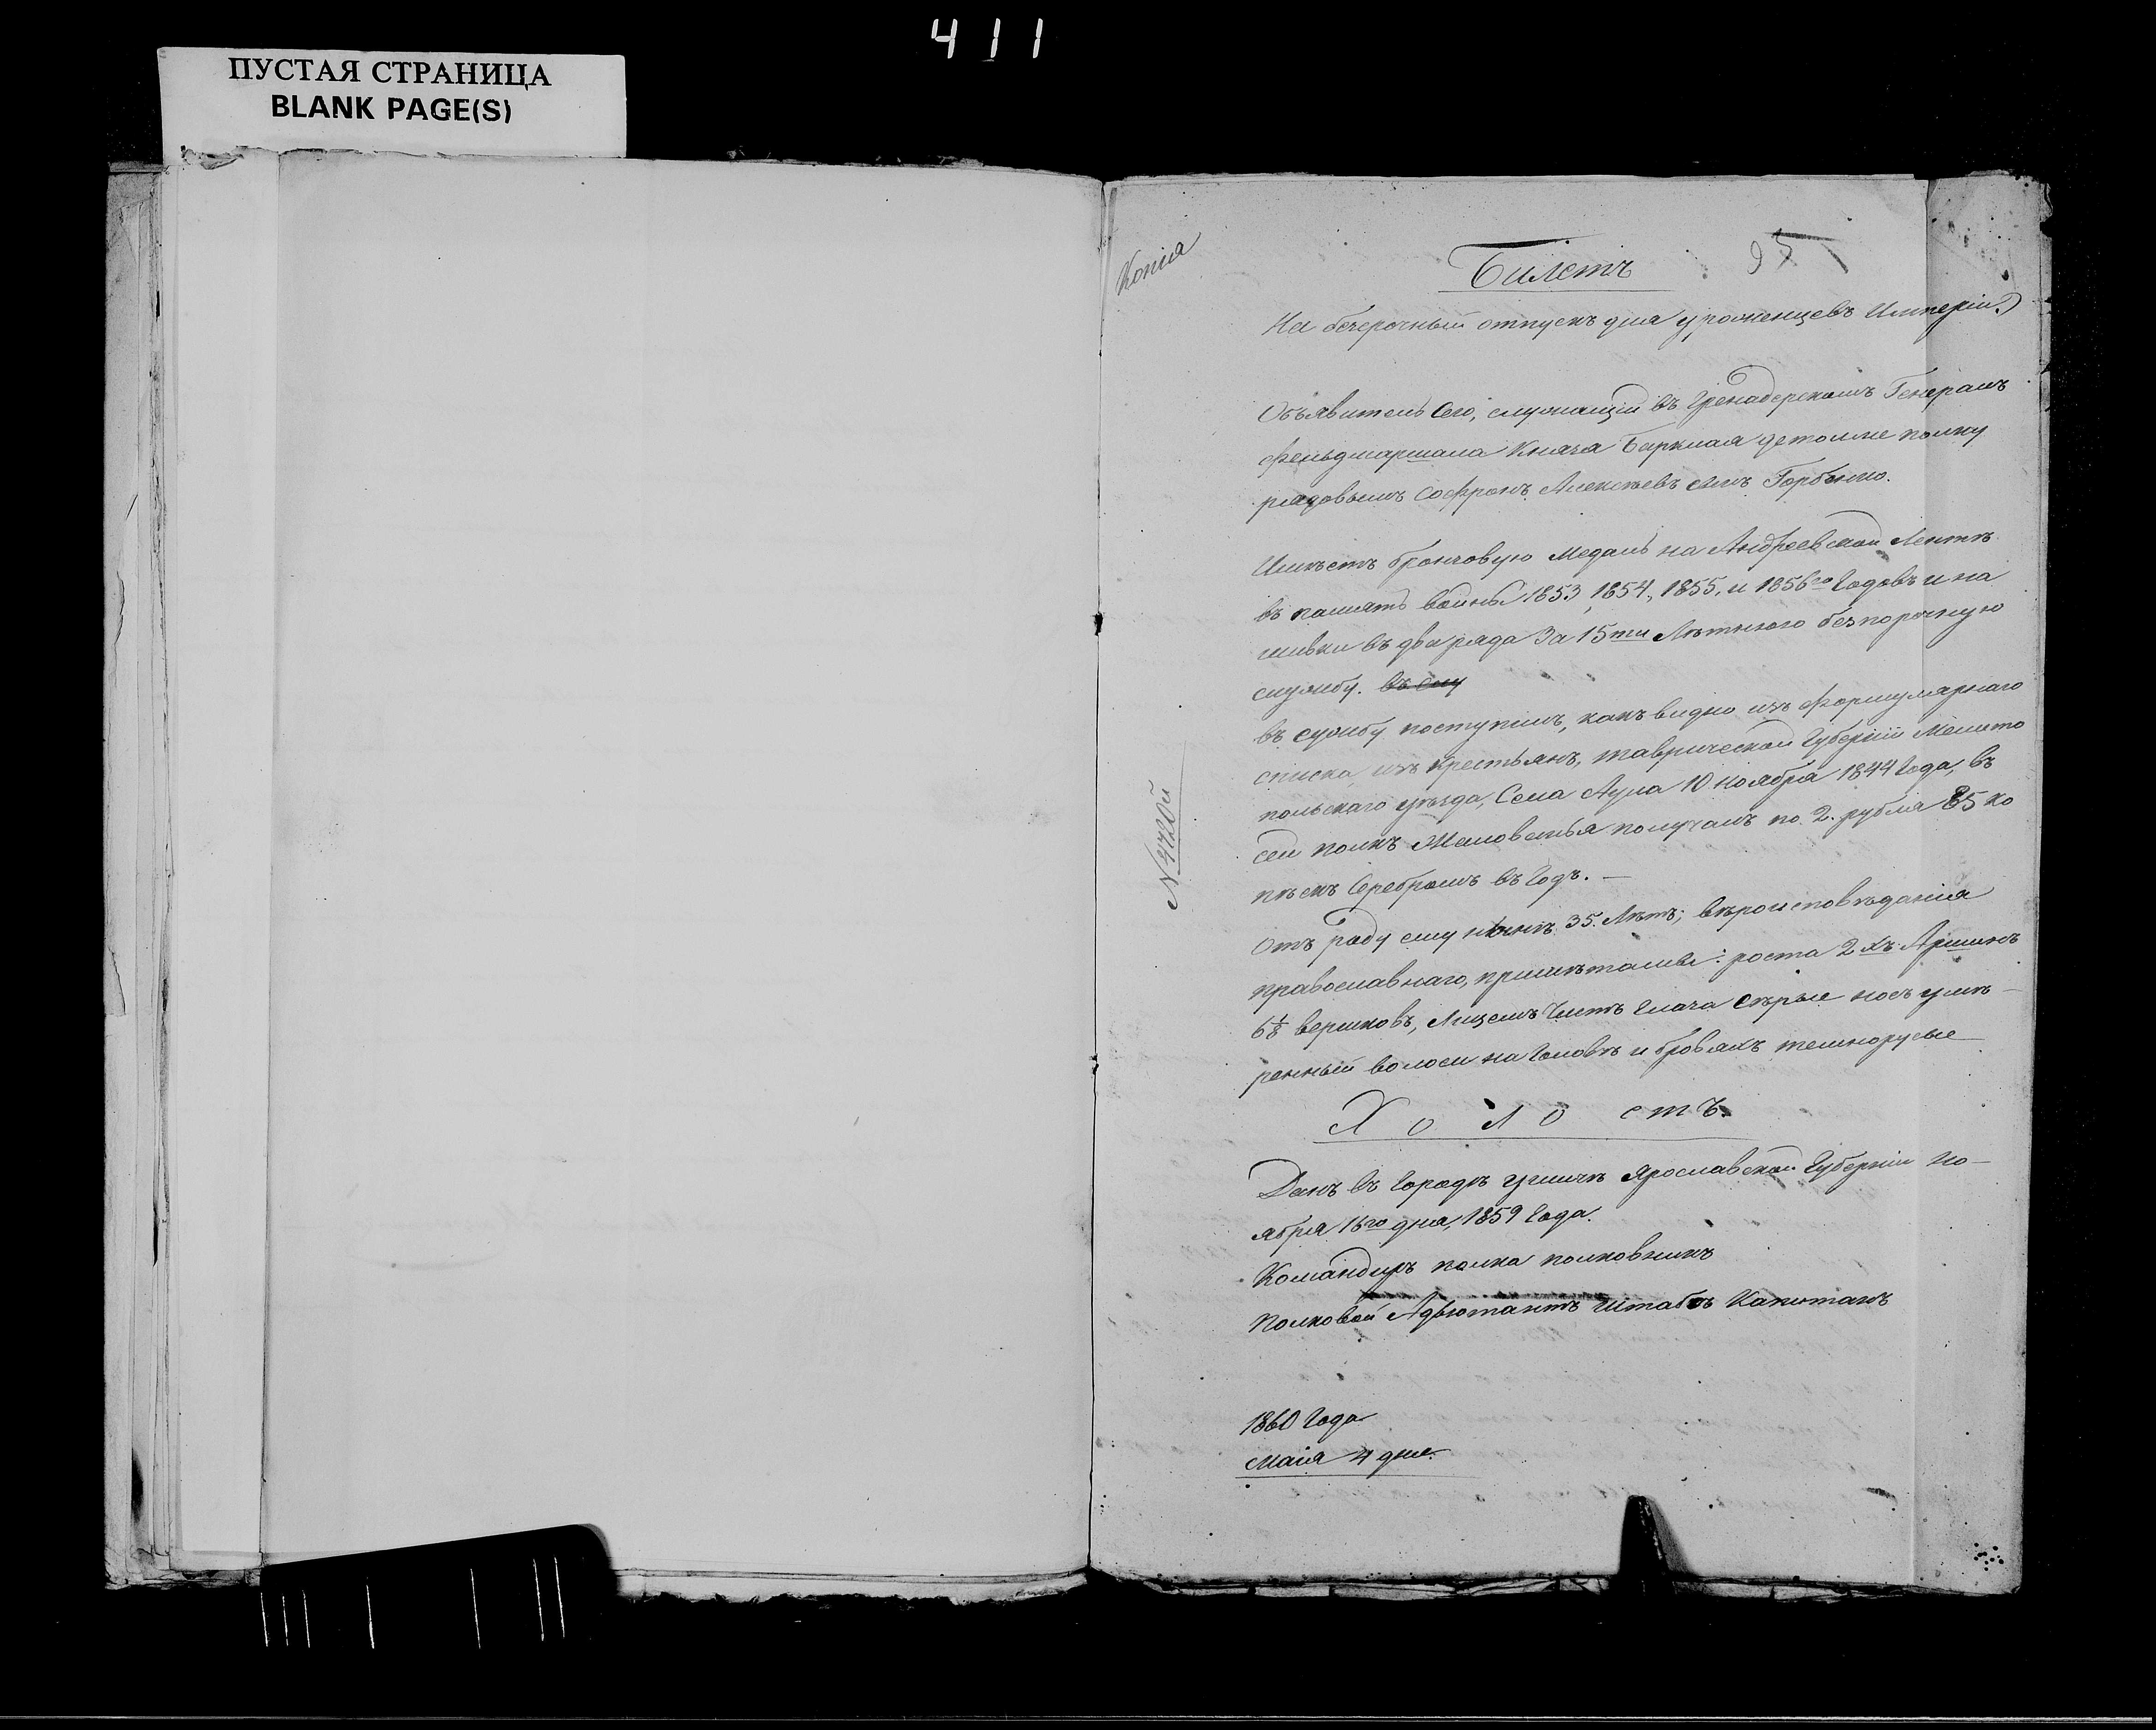 411
ПУСТАЯ СТРАНИЦА
BLANK PAGE(S)
Копiя
Билетъ
95
На безсрочный отпускъ для уроженцевъ Имперiи.
Объявитель сего, служащiй въ Гренадерскомъ Генералъ
Фельдмаршала Князя Барклая детолле полку
рядовымъ Софронъ Алексѣевъ сынъ Горбенко.
Имѣетъ бронзовую медаль на Андреевской Лентѣ
въ память войны 1853, 1854, 1855, и 1856го Годовъ и на
шивки въ два ряда За 15ти Лѣтнюю безпорочную
службу. въ слу
въ службу поступилъ, какъ видно изъ формулярнаго
списка, изъ крестьянъ, таврической Губернiи Мелито
польскаго уѣзда, Села Аула 10 ноября 1844 Года, въ
сей полкъ Жалованья получалъ по 2. рубля 85 ко
пѣекъ Серебромъ въ Годъ. —
Отъ роду ему нынѣ 35. Лѣтъ; вѣроисповѣданiя
православнаго, примѣтами: роста 2хъ Аршинъ
6 1/8 вершковъ, Лицемъ Чистъ Глаза Сѣрые носъ умѣ-
ренный волоси на Головѣ и бровяхъ темнорусые
Холостъ.
Данъ въ Городѣ Угличѣ Ярославской Губернiи но-
ября 16го дня, 1859 Года.
Командиръ полка полковникъ
Полковой Адъютантъ Штабсъ Капитанъ
№ 4720й
1860 Года
Маiя 4 дня.